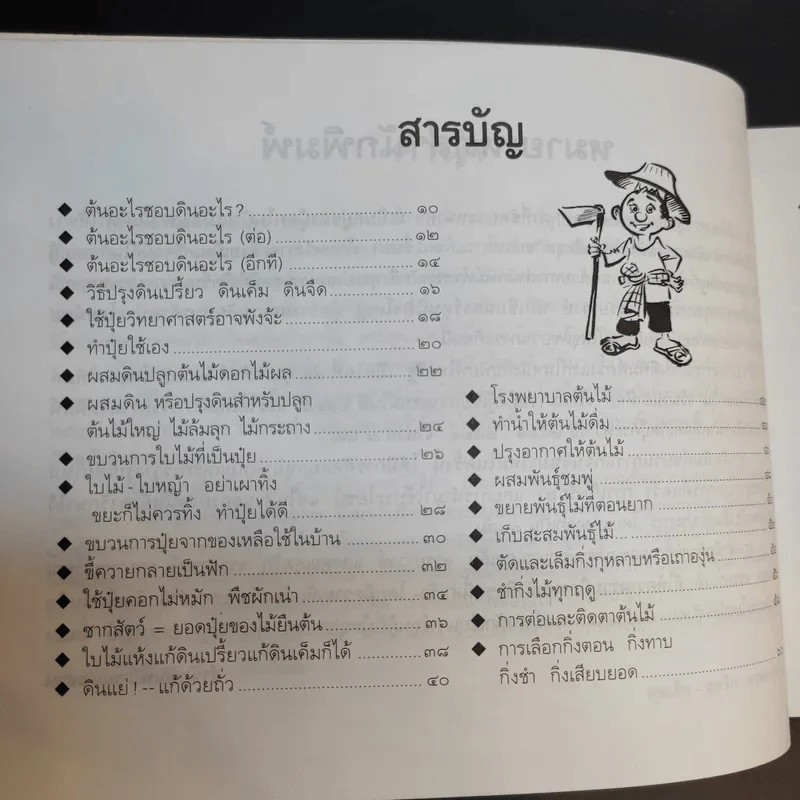 สารบัญ
◆ ต้นอะไรชอบดินอะไร? ........................ ๑๐
◆ ต้นอะไรชอบดินอะไร (ต่อ) ........................ ๑๒
◆ ต้นอะไรชอบดินอะไร (อีกที) ........................ ๑๔
◆ วิธีปรุงดินเปรี้ยว ดินเค็ม ดินจืด ........................ ๑๖
◆ ใช้ปุ๋ยวิทยาศาสตร์อาจพังจ้ะ ........................ ๑๘
◆ ทำปุ๋ยใช้เอง ........................ ๒๐
◆ ผสมดินปลูกต้นไม้ดอกไม้ผล ........................ ๒๒
◆ ผสมดิน หรือปรุงดินสำหรับปลูก
ต้นไม้ใหญ่ ไม้ล้มลุก ไม้กระถาง ........................ ๒๔
◆ ขบวนการใบไม้ที่เป็นปุ๋ย ........................ ๒๖
◆ ใบไม้-ใบหญ้า อย่าเผาทิ้ง
ขยะก็ไม่ควรทิ้ง ทำปุ๋ยได้ดี ........................ ๒๘
◆ ขบวนการปุ๋ยจากของเหลือใช้ในบ้าน ........................ ๓๐
◆ ขี้ควายกลายเป็นฟัก ........................ ๓๒
◆ ใช้ปุ๋ยคอกไม่หมัก พืชผักเน่า ........................ ๓๔
◆ ซากสัตว์ = ยอดปุ๋ยของไม้ยืนต้น ........................ ๓๖
◆ ใบไม้แห้งแก้ดินเปรี้ยวแก้ดินเค็มก็ได้ ........................ ๓๘
◆ ดินแย่!--แก้ด้วยถั่ว ........................ ๔๐
◆ โรงพยาบาลต้นไม้ ........................
◆ ทำน้ำให้ต้นไม้ดื่ม ........................
◆ ปรุงอากาศให้ต้นไม้ ........................
◆ ผสมพันธุ์ชมพู่ ........................
◆ ขยายพันธุ์ไม้ที่ตอนยาก ........................
◆ เก็บสะสมพันธุ์ไม้ ........................
◆ ตัดและเล็มกิ่งกุหลาบหรือเถาองุ่น ........................
◆ ชำกิ่งไม้ทุกฤดู ........................
◆ การต่อและติดตาต้นไม้ ........................
◆ การเลือกกิ่งตอน กิ่งทาบ
กิ่งชำ กิ่งเสียบยอด ........................